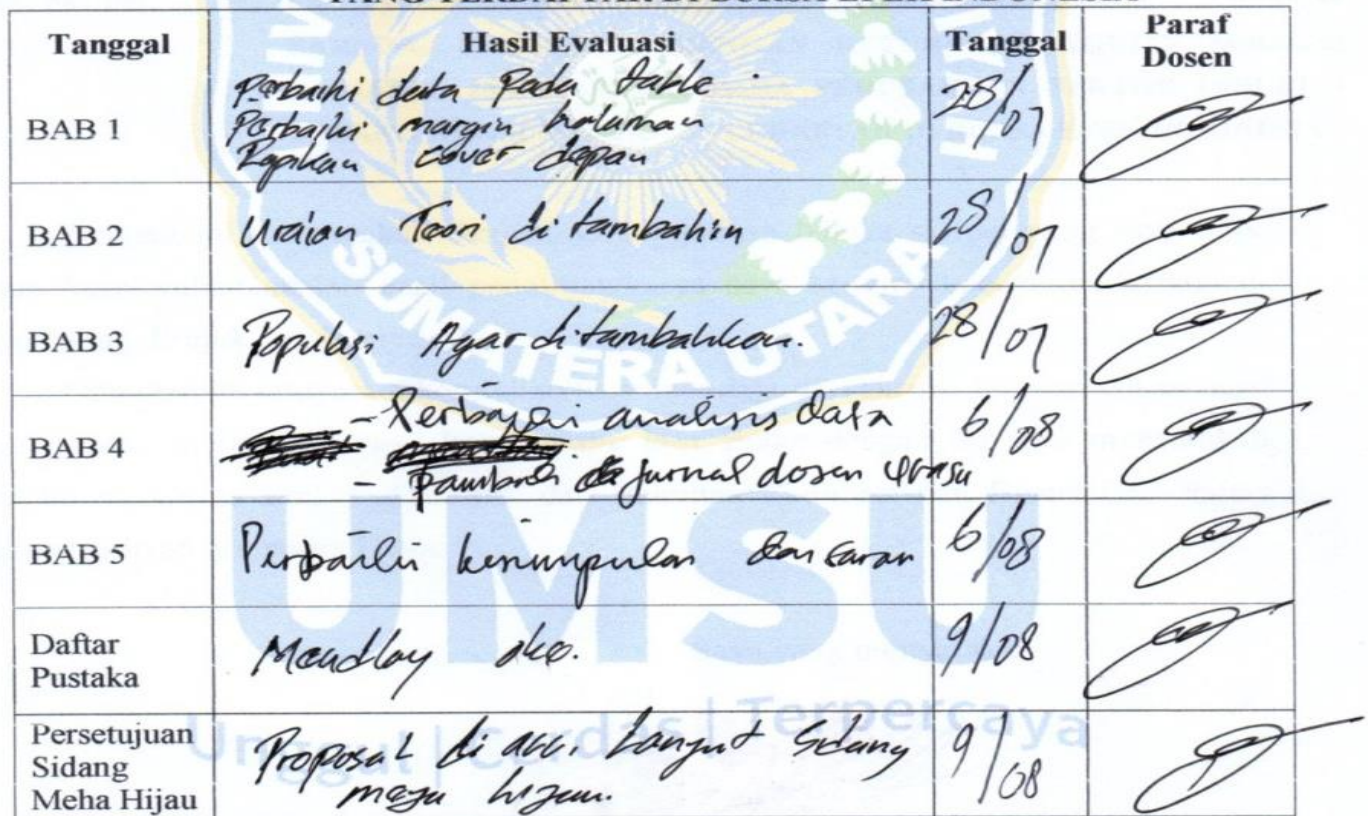 YANG TERDAFTAR DI BURSA EFEK INDONESIA
Tanggal Hasil Evaluasi Tanggal Paraf Dosen
BAB 1 Perbaiki data Pada table 28/07
Perbaiki margin halaman
Rapikan cover depan
BAB 2 Uraian Teori di tambahin 28/07
BAB 3 Populasi Agar ditambahkan. 28/07
BAB 4 - Perbagai analisis data 6/08
- jurnal dosen
BAB 5 Perbaiki kesimpulan dan saran 6/08
Daftar Pustaka Mendley 9/08
Persetujuan Sidang Meha Hijau Proposal di acc. Lanjut Sidang 9/08
meja hijau.
SUMATERA UTARA
UMSU
Unggul | Cerdas | Terpercaya